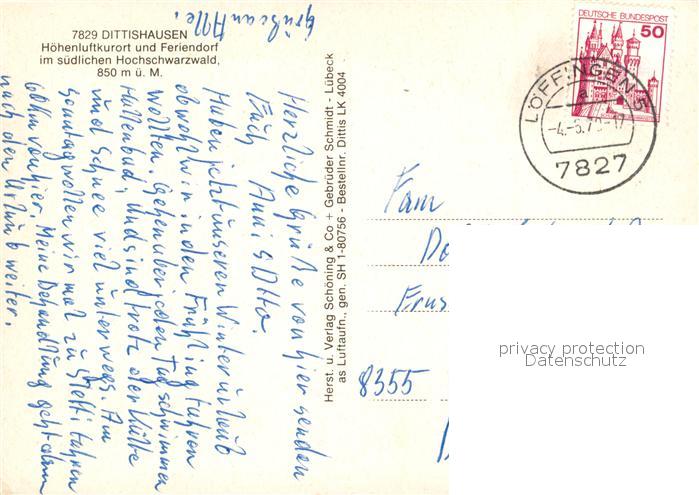 7829 DITTISHAUSEN
Höhenluftkurort und Feriendorf
im südlichen Hochschwarzwald,
850 m ü. M.
Grüße an Alle.
Herzliche Grüße von hier senden
Euch Anni & Otto.
Haben jetzt unseren Winterurlaub
obwohl wir in den Frühling fahren
wollten. Gehen aber jeden Tag schwimmen
Hallenbad, und sind trotz der Kälte
und Schnee viel unterwegs. Am
Sonntag wollen wir mal zu Steffi fahren
60 km von hier. Meine Behandlung geht dann
nach den Urlaub weiter.
Herst. u. Verlag Schöning & Co + Gebrüder Schmidt - Lübeck
as Luftaufn., gen. SH 1-80756 - Bestellnr. Dittis LK 4004
DEUTSCHE BUNDESPOST
50
LÖFFINGEN 5
a
7827
Fam
Do
8355
privacy protection
Datenschutz